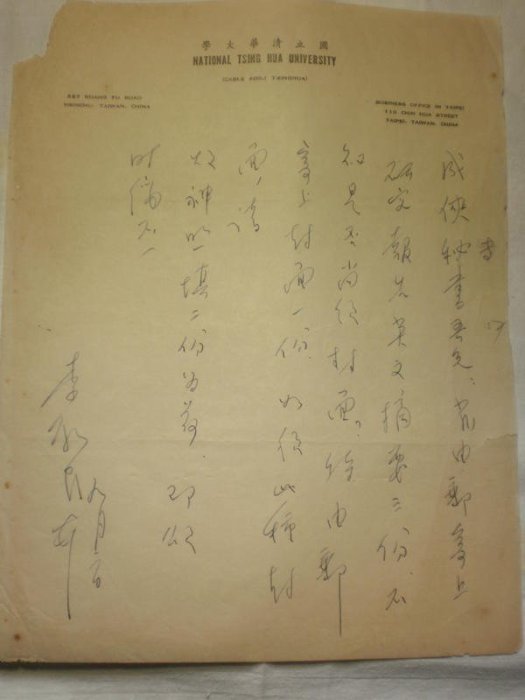 學大華清立國
NATIONAL TSING HUA UNIVERSITY
(CABLE ADD.: TSINGHUA)
855 KUANG FU ROAD
HSINCHU, TAIWAN, CHINA
BUSINESS OFFICE IN TAIPEI
110 CHIN HUA STREET
TAIPEI, TAIWAN, CHINA
成俠秘書吾兄、前由郵寄上
研究報告英文摘要二份、不
知是否尚須封面。特由郵
寄上封面一份、如須此種封
面、請
費神照填二份為荷、即頌
時綏
李
月